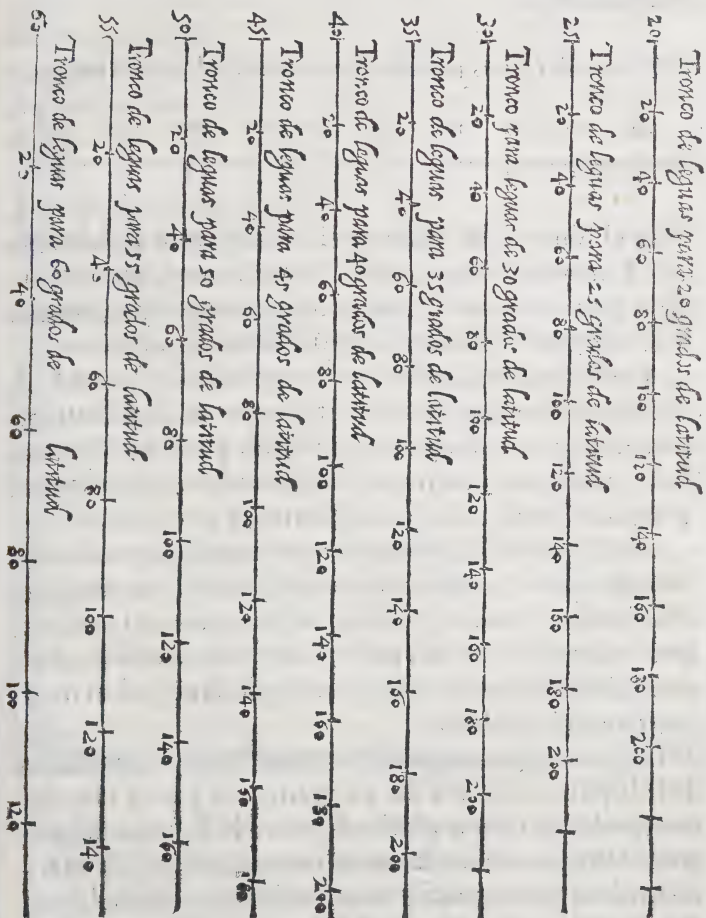 Tronco de leguas para 20 grados de latitud
20 20 40 60 80 100 120 140 160 180 200
Tronco de leguas para 25 grados de latitud
25 20 40 60 80 100 120 140 160 180 200
Tronco para leguas de 30 grados de latitud
30 20 40 60 80 100 120 140 160 180 200
Tronco de leguas para 35 grados de latitud
35 20 40 60 80 100 120 140 160 180 200
Tronco de leguas para 40 grados de latitud
40 20 40 60 80 100 120 140 160 180 200
Tronco de leguas para 45 grados de latitud
45 20 40 60 80 100 120 140 160 180
Tronco de leguas para 50 grados de latitud
50 20 40 60 80 100 120 140 160
Tronco de leguas para 55 grados de latitud
55 20 40 60 80 100 120 140
Tronco de leguas para 60 grados de latitud
60 20 40 60 80 100 120